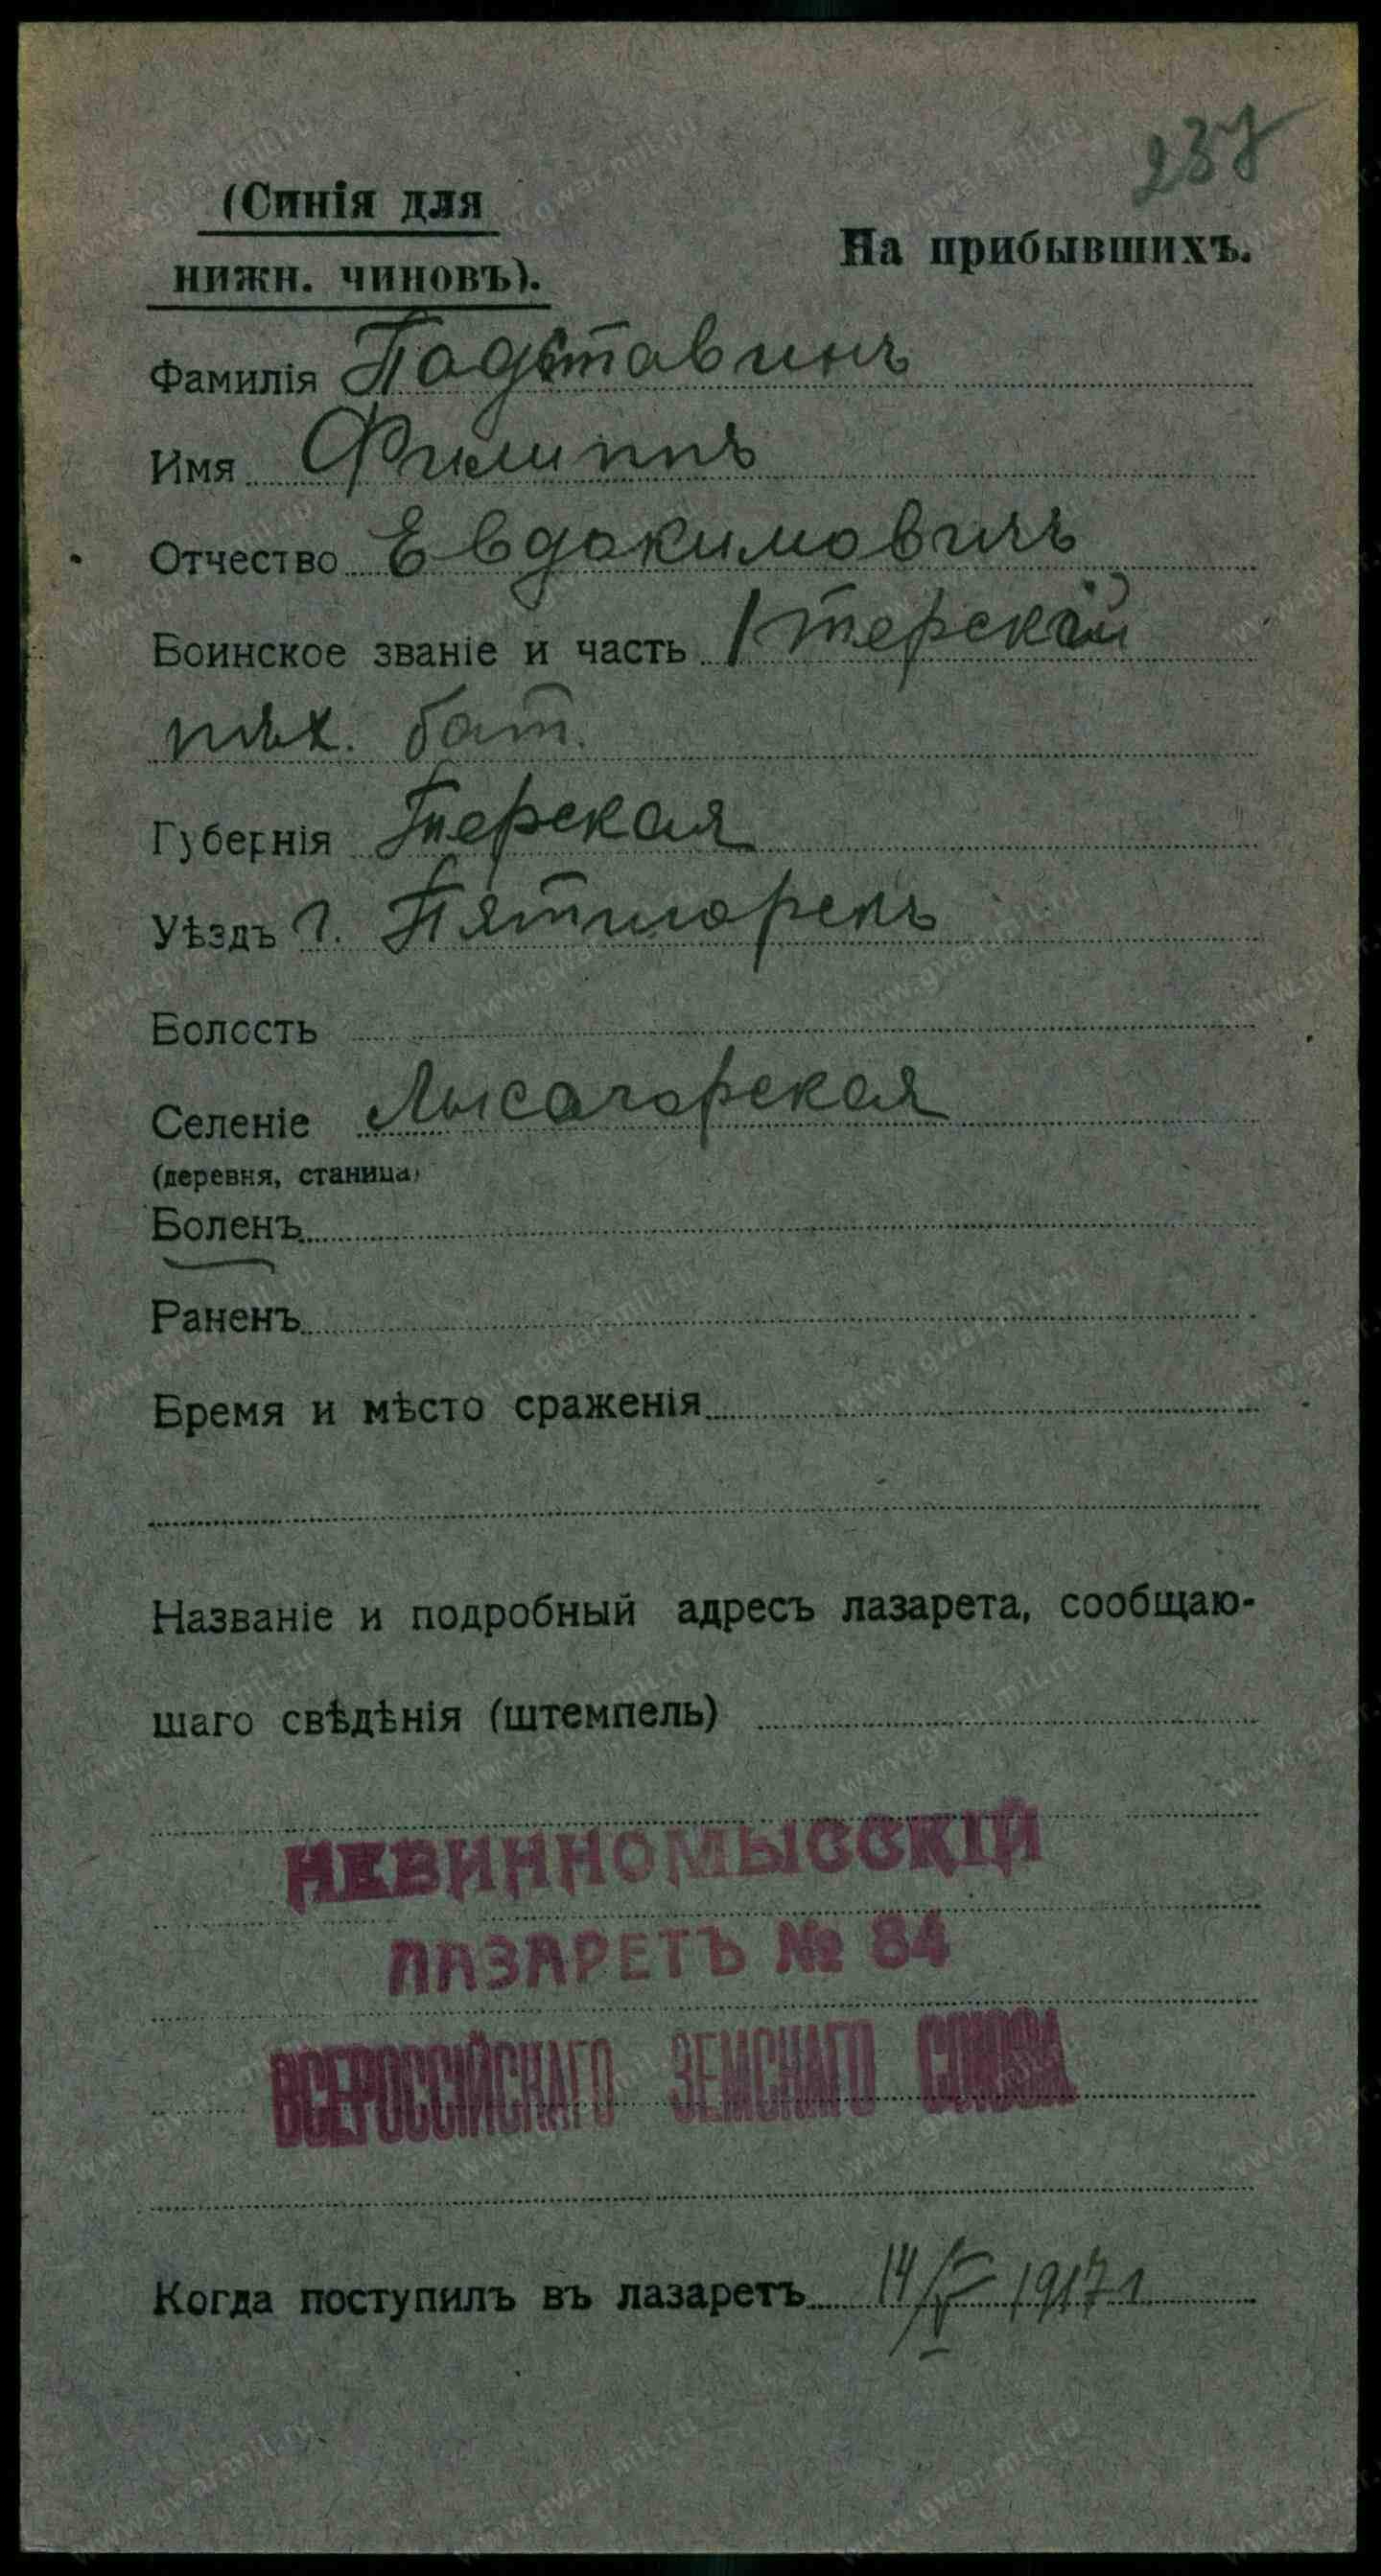 237
(Синія для
На прибывшихъ.
нижн. чиновъ).
Фамилія Падставинъ
Имя Филиппъ
Отчество Евдакимовичъ
Воинское званіе и часть 1 терскій
пѣх. бат.
Губернія Терская
Уѣздъ г. Пятигорскъ
Волость
Селеніе Лысагорская
(деревня, станица)
Боленъ
Раненъ
Время и мѣсто сраженія
Названіе и подробный адресъ лазарета, сообщаю-
шаго свѣдѣнія (штемпель)
НЕВИННОМЫССКІЙ
ЛАЗАРЕТЪ № 84
ВСЕРОССІЙСКАГО ЗЕМСКАГО СОЮЗА
Когда поступилъ въ лазаретъ 14/V 1917 г
www.gwar.mil.ru